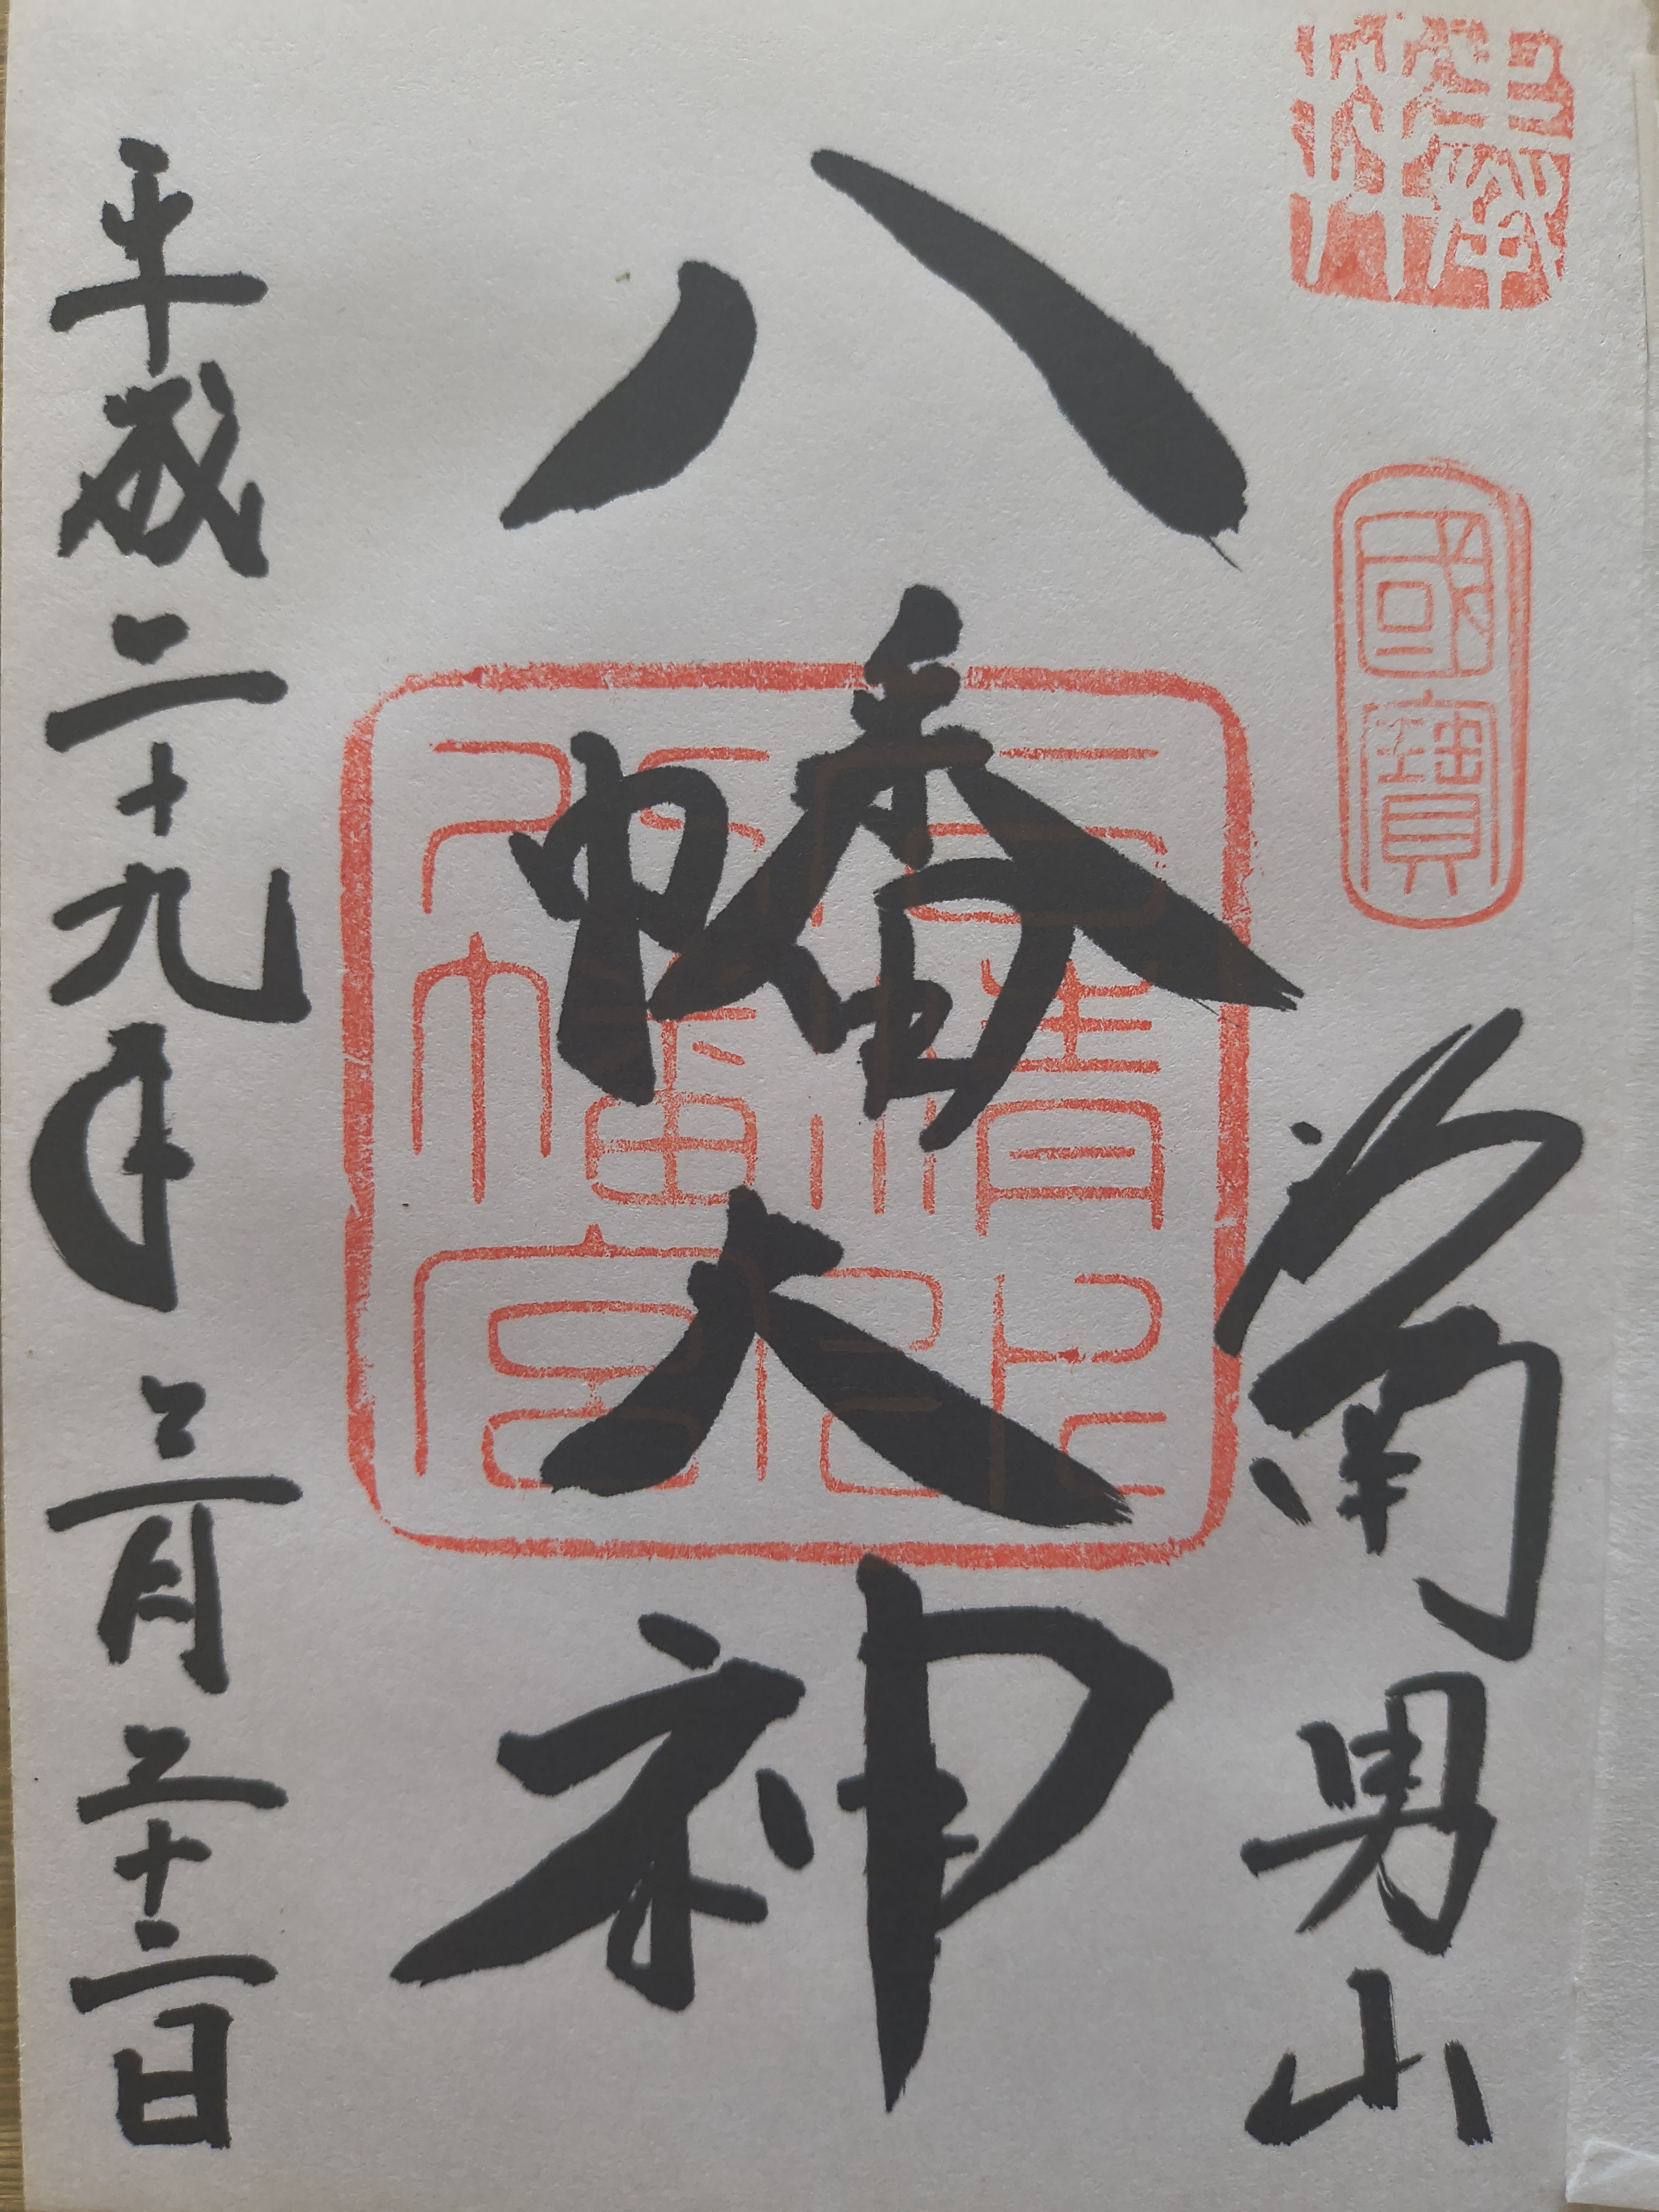 奉拝
國寶
男山
八幡大神
石清水
八幡宮
平成二十九年三月二十二日